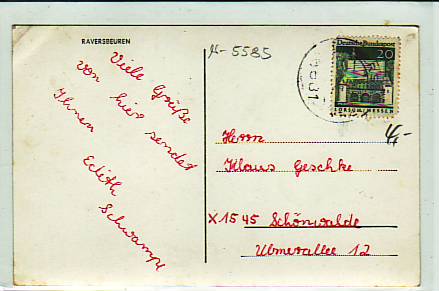 RAVERSBEUREN
Viele Grüße
von hier sendet
Ihnen
Edith Schwampe
H-5585
Deutsche Bundespost
20
LORSCH/HESSEN
4,-
Herrn
Klaus Geschke
X1545 Schönwalde
Ulmenallee 12